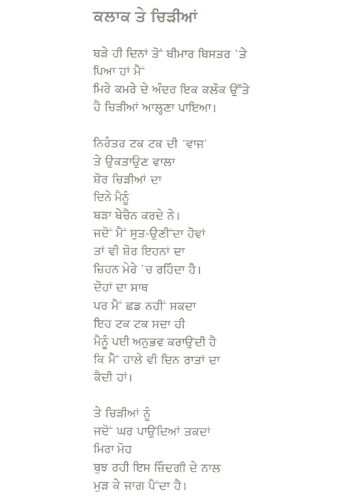 ਕਲਾਕ ਤੇ ਚਿੜੀਆਂ
ਬੜੇ ਹੀ ਦਿਨਾਂ ਤੋਂ ਬੀਮਾਰ ਬਿਸਤਰ 'ਤੇ
ਪਿਆ ਹਾਂ ਮੈਂ
ਮਿਰੇ ਕਮਰੇ ਦੇ ਅੰਦਰ ਇਕ ਕਲੌਕ ਉੱਤੇ
ਹੈ ਚਿੜੀਆਂ ਆਲ੍ਹਣਾ ਪਾਇਆ।
ਨਿਰੰਤਰ ਟਕ ਟਕ ਦੀ 'ਵਾਜ'
ਤੇ ਉਕਤਾਉਣ ਵਾਲਾ
ਸ਼ੋਰ ਚਿੜੀਆਂ ਦਾ
ਦਿਨੇ ਮੈਨੂੰ
ਬੜਾ ਬੇਚੈਨ ਕਰਦੇ ਨੇ।
ਜਦੋਂ ਮੈਂ ਸੁਤ-ਉਣੀਂਦਾ ਹੋਵਾਂ
ਤਾਂ ਵੀ ਸ਼ੋਰ ਇਹਨਾਂ ਦਾ
ਜ਼ਿਹਨ ਮੇਰੇ 'ਚ ਰਹਿੰਦਾ ਹੈ।
ਦੋਹਾਂ ਦਾ ਸਾਥ
ਪਰ ਮੈਂ ਛਡ ਨਹੀਂ ਸਕਦਾ
ਇਹ ਟਕ ਟਕ ਸਦਾ ਹੀ
ਮੈਨੂੰ ਪਈ ਅਨੁਭਵ ਕਰਾਉਂਦੀ ਹੈ
ਕਿ ਮੈਂ ਹਾਲੇ ਵੀ ਦਿਨ ਰਾਤਾਂ ਦਾ
ਕੈਦੀ ਹਾਂ।
ਤੇ ਚਿੜੀਆਂ ਨੂੰ
ਜਦੋਂ ਘਰ ਪਾਉਂਦਿਆਂ ਤਕਦਾਂ
ਮਿਰਾ ਮੋਹ
ਬੁਝ ਰਹੀ ਇਸ ਜ਼ਿੰਦਗੀ ਦੇ ਨਾਲ
ਮੁੜ ਕੇ ਜਾਗ ਪੈਂਦਾ ਹੈ।